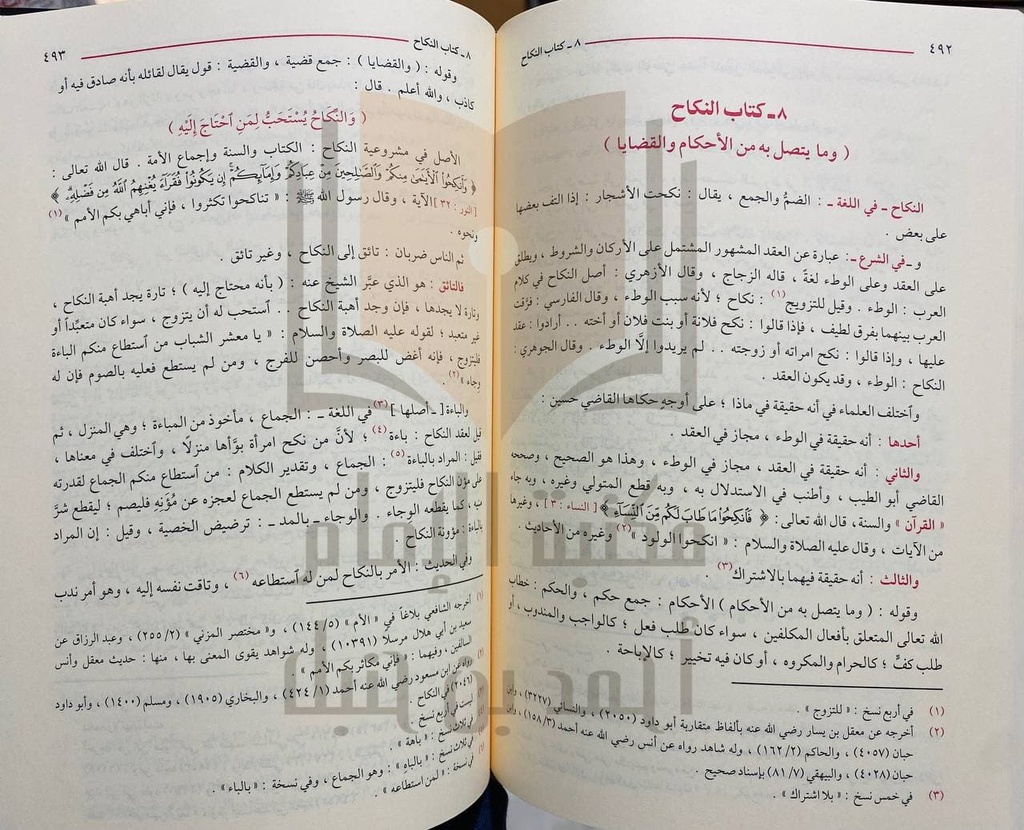 ٤٩٢
٨ ـ كتاب النكاح
٨ـ كتاب النكاح
( وما يتصل به من الأحكام والقضايا )
النكاح ـ في اللغة ـ : الضمُّ والجمع ، يقال : نكحت الأشجار : إذا التف بعضها
على بعض .
و ـ في الشرع ـ : عبارة عن العقد المشهور المشتمل على الأركان والشروط ، ويطلق
على العقد وعلى الوطء لغةً ، قاله الزجاج ، وقال الأزهري : أصل النكاح في كلام
العرب : الوطء . وقيل للتزويج (١) : نكاح ؛ لأنه سبب الوطء ، وقال الفارسي : فرَّقت
العرب بينهما بفرق لطيف ، فإذا قالوا : نكح فلانة أو بنت فلان أو أخته .. أرادوا : عقد
عليها ، وإذا قالوا : نكح امراته أو زوجته .. لم يريدوا إلَّا الوطء . وقال الجوهري :
النكاح : الوطء ، وقد يكون العقد .
وٱختلف العلماء في أنه حقيقة في ماذا ؛ على أوجهٍ حكاها القاضي حسين :
أحدها : أنه حقيقة في الوطء ، مجاز في العقد .
والثاني : أنه حقيقة في العقد ، مجاز في الوطء ، وهذا هو الصحيح ، وصححه
القاضي أبو الطيب ، وأطنب في الاستدلال به ، وبه قطع المتولي وغيره ، وبه جاء
« القرآن » والسنة، قال الله تعالى : ﴿ فَٱنكِحُوا۟ مَا طَابَ لَكُم مِّنَ ٱلنِّسَآءِ ﴾ [ النساء : ٣ ] ، وغيرها
من الآيات ، وقال عليه الصلاة والسلام : « انكحوا الولود » (٢) وغيره من الأحاديث .
والثالث : أنه حقيقة فيهما بالاشتراك (٣) .
وقوله : ( وما يتصل به من الأحكام ) الأحكام : جمع حكم ، والحكم : خطاب
الله تعالى المتعلق بأفعال المكلفين ، سواء كان طلب فعل ؛ كالواجب والمندوب ، أو
طلب كفٍّ ؛ كالحرام والمكروه ، أو كان فيه تخيير ؛ كالإباحة .
(١) في أربع نسخ : « للتزوج » .
(٢) أخرجه عن معقل بن يسار رضي الله عنه بألفاظ متقاربة أبو داود ( ٢٠٥٠ ) ، والنسائي ( ٣٢٢٧ ) ، وابن
حبان ( ٤٠٥٧ ) ، والحاكم ( ١٦٢/٢ ) ، وله شاهد رواه عن أنس رضي الله عنه أحمد ( ١٥٨/٣ ) ، وابن
حبان ( ٤٠٢٨ ) ، والبيهقي ( ٨١/٧ ) بإسناد صحيح .
(٣) في خمس نسخ : « بلا اشتراك » .
٨ ـ كتاب النكاح
٤٩٣
وقوله : ( والقضايا ) : جمع قضية ، والقضية : قول يقال لقائله بأنه صادق فيه أو
كاذب ، والله أعلم . قال :
( وَٱلنِّكَاحُ يُسْتَحَبُّ لِمَنِ ٱحْتَاجَ إِلَيْهِ )
الأصل في مشروعية النكاح : الكتاب والسنة وإجماع الأمة . قال الله تعالى :
﴿ وَأَنكِحُوا۟ ٱلْأَيَٰمَىٰ مِنكُمْ وَٱلصَّٰلِحِينَ مِنْ عِبَادِكُمْ وَإِمَآئِكُمْ إِن يَكُونُوا۟ فُقَرَآءَ يُغْنِهِمُ ٱللَّهُ مِن فَضْلِهِ ﴾
[ النور : ٣٢ ] الآية ، وقال رسول الله ﷺ : « تناكحوا تكثروا ، فإني أباهي بكم الأمم » (١)
ونحوه .
ثم الناس ضربان : تائق إلى النكاح ، وغير تائق .
فالتائق : هو الذي عبَّر الشيخ عنه : ( بأنه محتاج إليه ) ؛ تارة يجد أهبة النكاح ،
وتارة لا يجدها ، فإن وجد أهبة النكاح .. ٱستحب له أن يتزوج ، سواء كان متعبِّداً أو
غير متعبد ؛ لقوله عليه الصلاة والسلام : « يا معشر الشباب من ٱستطاع منكم الباءة
فليتزوج ، فإنه أغض للبصر وأحصن للفرج ، ومن لم يستطع فعليه بالصوم فإن له
وجاء » (٢) .
والباءة [ ـ أصلها ] (٣) في اللغة ـ : الجماع ، مأخوذ من المباءة ؛ وهي المنزل ، ثم
قيل لعقد النكاح : باءة (٤) ؛ لأنَّ من نكح امرأة بوَّأها منزلًا ، وٱختلف في معناها ،
فقيل : المراد بالباءة (٥) : الجماع ، وتقدير الكلام : من ٱستطاع منكم الجماع لقدرته
على مؤن النكاح فليتزوج ، ومن لم يستطع الجماع لعجزه عن مُؤَنِه فليصم ؛ ليقطع شرَّ
منيه ، كما يقطعه الوجاء . والوجاء ـ بالمد ـ : ترضيض الخصية ، وقيل : إن المراد
بالباءة : مؤونة النكاح .
وفي الحديث : الأمر بالنكاح لمن له ٱستطاعه (٦) ، وتاقت نفسه إليه ، وهو أمر ندب
(١) أخرجه الشافعي بلاغاً في « الأم » ( ١٤٤/٥ ) ، و« مختصر المزني » ( ٢٥٥/٢ ) ، وعبد الرزاق عن
سعيد بن أبي هلال مرسلًا ( ١٠٣٩١ ) ، وله شواهد يقوى المعنى بها ، منها : حديث معقل وأنس
السالفين ، وفيهما : « فإني مكاثر بكم الأمم »
رواه عن ابن مسعود رضي الله عنه أحمد ( ٤٢٤/١ ) ، والبخاري ( ١٩٠٥ ) ، ومسلم ( ١٤٠٠ ) ، وأبو داود
( ٢٠٤٦ ) في النكاح .
ليست في أربع نسخ .
في ثلاث نسخ : « باهة » .
في ثلاث نسخ : « بالباه » : وهو الجماع ، وفي نسخة : « بالباء » .
في نسخة : « لمن استطاعه » .
مكتبة الإمام